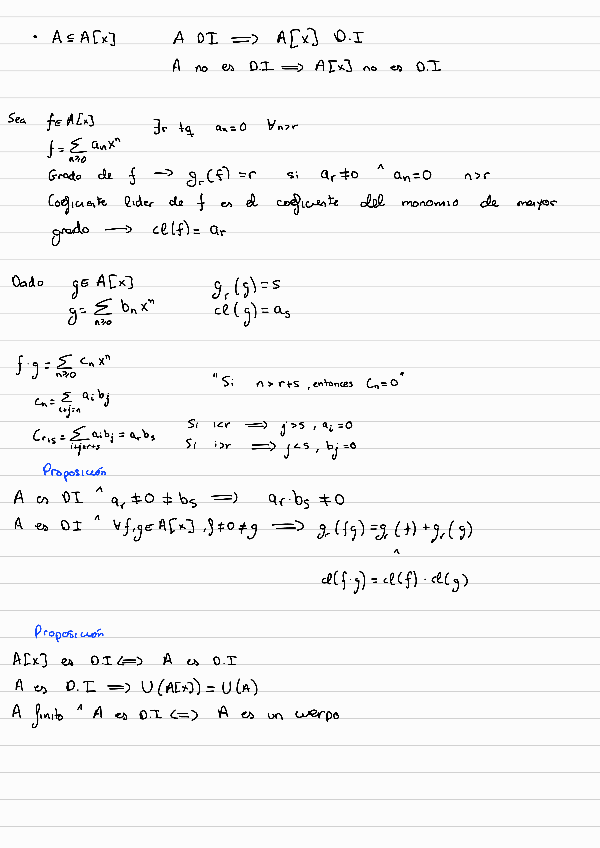 • A ⊆ A[x] A DI ⟹ A[x] D.I
A no es D.I ⟹ A[x] no es D.I
Sea f ∈ A[x] ∃r tq aₙ=0 ∀n>r
f = ∑_{n≥0} aₙxⁿ
Grado de f ⟶ gr(f) = r si aᵣ≠0 ^ aₙ=0 n>r
Coeficiente lider de f es el coeficiente del monomio de mayor
grado ⟶ cl(f) = aᵣ
Dado g ∈ A[x] gr(g) = s
g = ∑_{n≥0} bₙxⁿ cl(g) = aₛ
f·g = ∑_{n≥0} cₙxⁿ
"Si n > r+s, entonces cₙ=0"
cₙ = ∑_{i+j=n} aᵢbⱼ
Si i<r ⟹ j>s, aᵢ=0
cᵣ₊ₛ = ∑_{i+j=r+s} aᵢbⱼ = aᵣbₛ
Si i>r ⟹ j<s, bⱼ=0
Proposición
A es DI ^ aᵣ ≠ 0 ≠ bₛ ⟹ aᵣ·bₛ ≠ 0
A es DI ^ ∀f,g ∈ A[x], f≠0≠g ⟹ gr(fg) = gr(f) + gr(g)
^
cl(f·g) = cl(f)·cl(g)
Proposición
A[x] es D.I ⟺ A es D.I
A es D.I ⟹ U(A[x]) = U(A)
A finito ^ A es D.I ⟺ A es un cuerpo